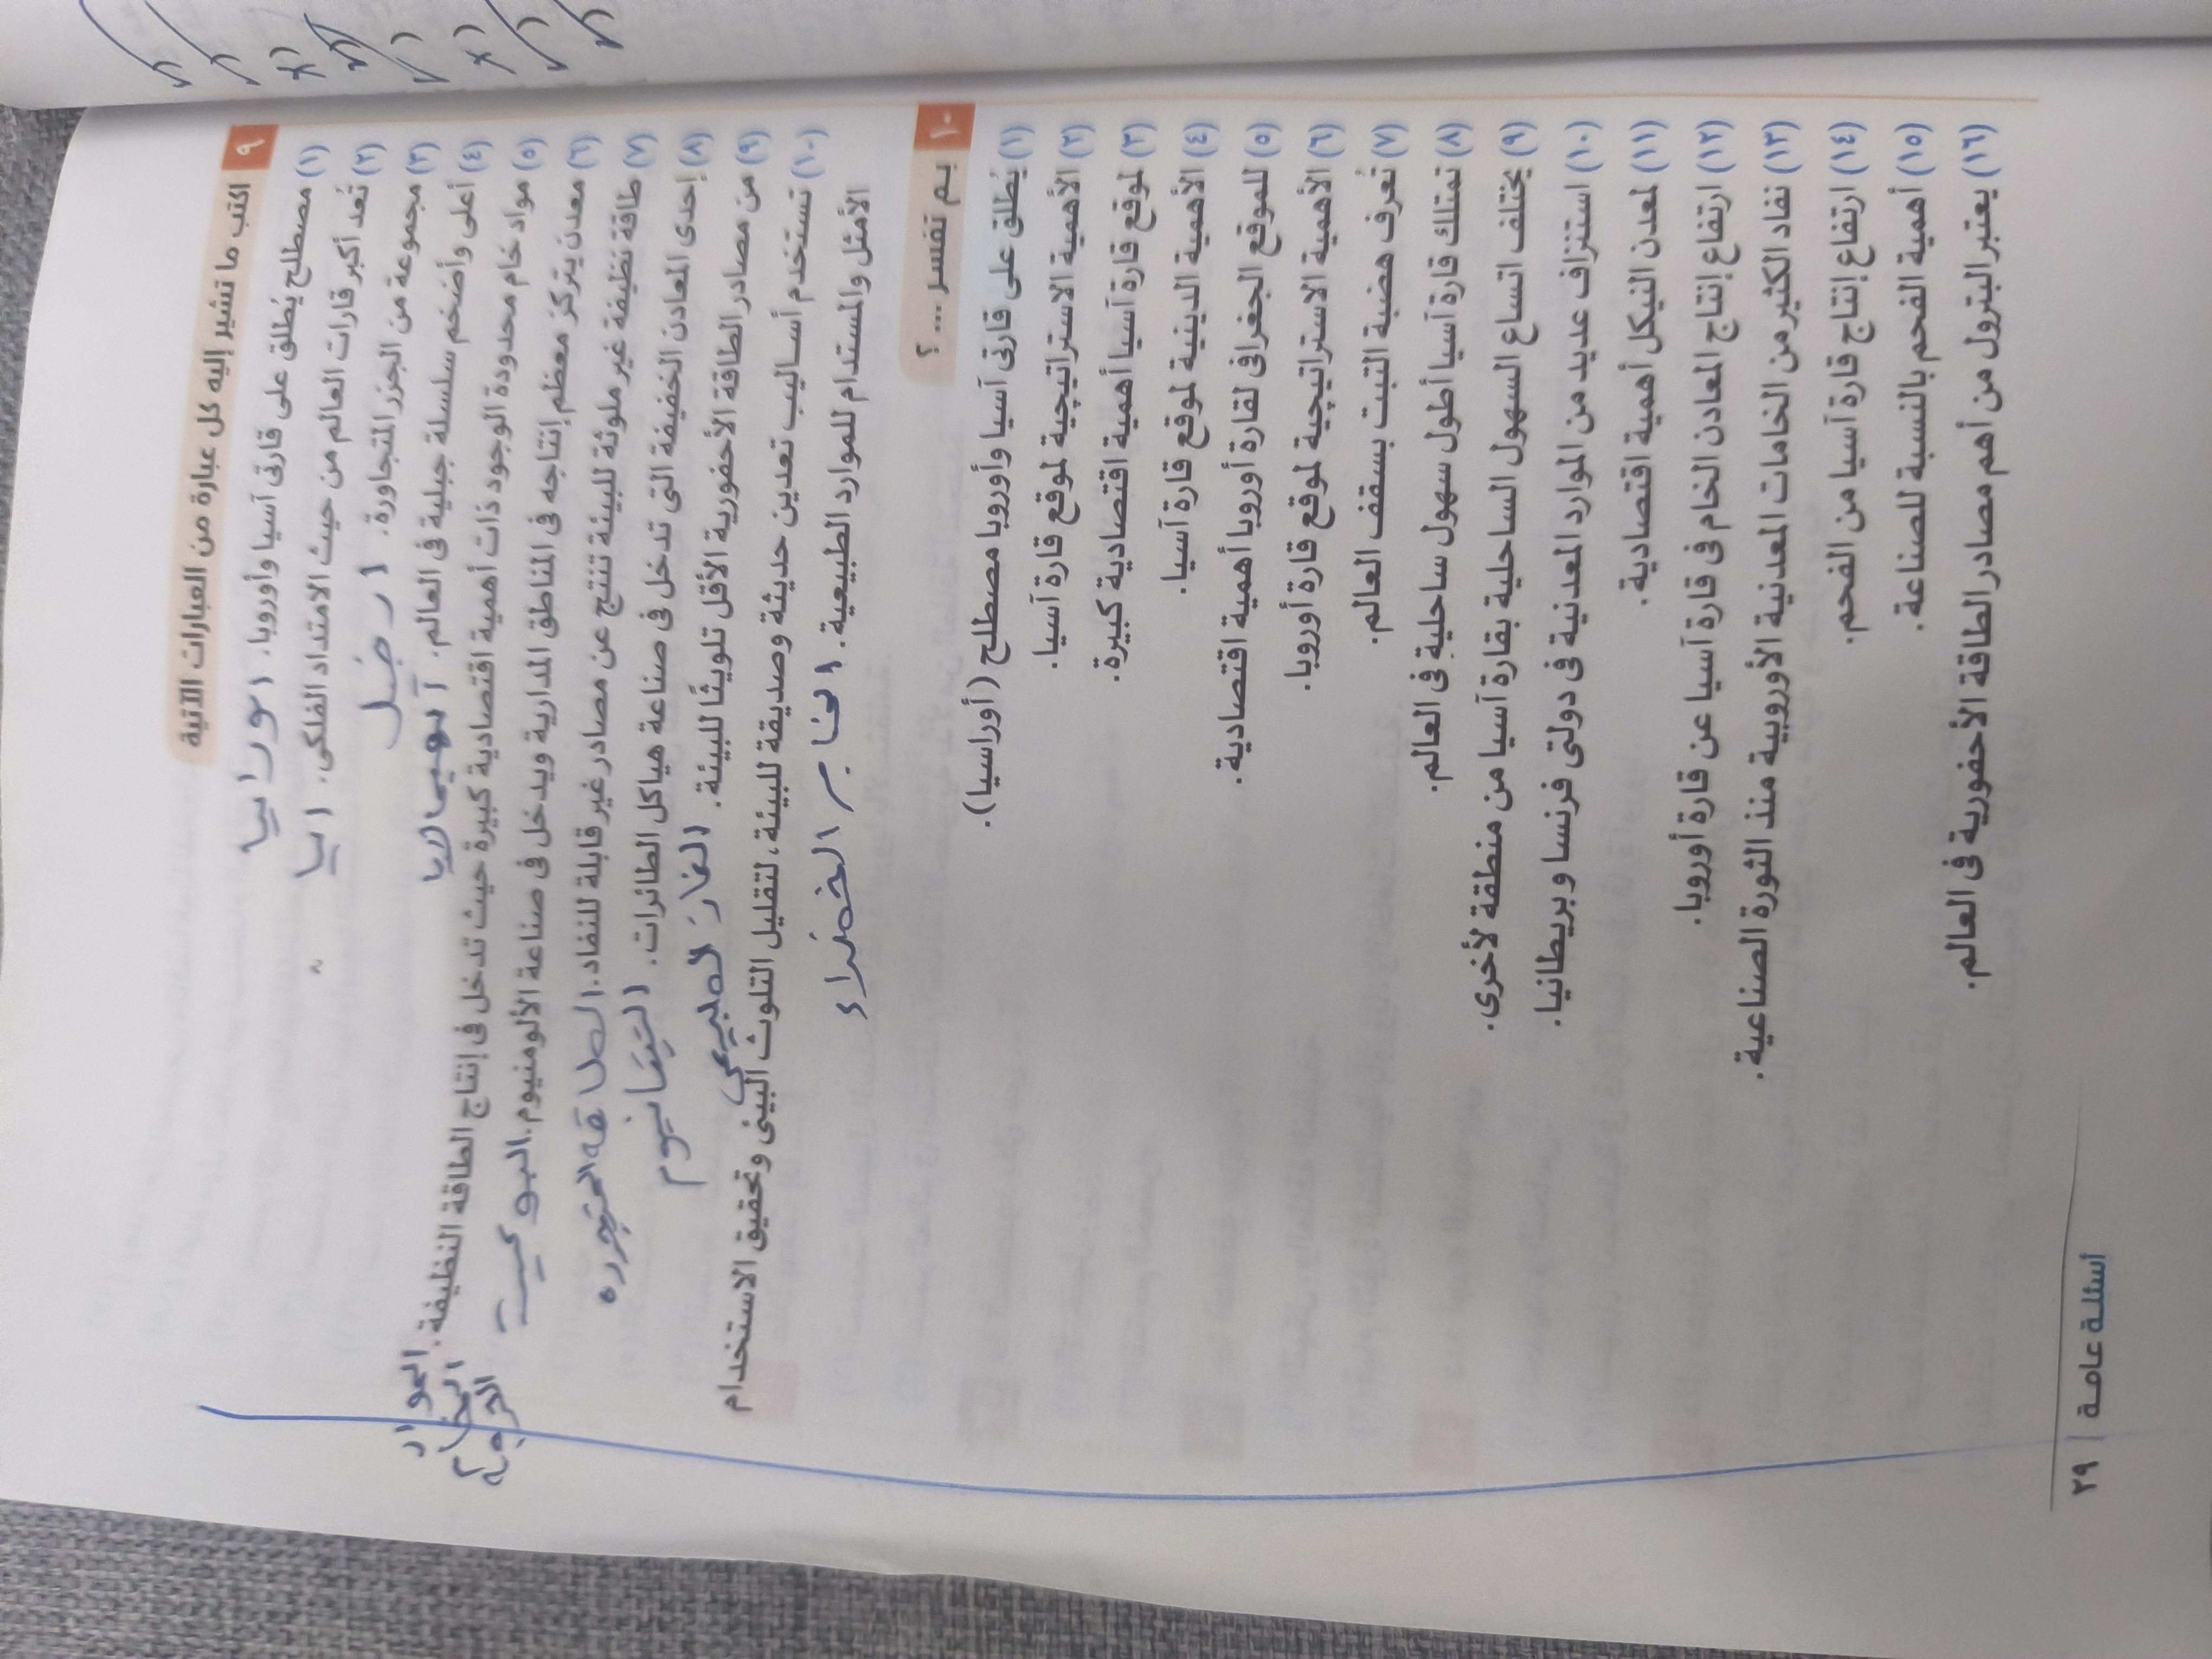 ٩ اكتب ما تشير إليه كل عبارة من العبارات الآتية
(١) مصطلح يُطلق على قارتى آسيا وأوروبا. اوراسيا
(٢) تُعد أكبر قارات العالم من حيث الامتداد الفلكى. اسيا
(٣) مجموعة من الجزر المتجاورة. ارخبيل
(٤) أعلى وأضخم سلسلة جبلية فى العالم. الهيمالايا
(٥) مواد خام محدودة الوجود ذات أهمية اقتصادية كبيرة حيث تدخل فى إنتاج الطاقة النظيفة. المواد
الخام
الحرجة
(٦) معدن يتركز معظم إنتاجه فى المناطق المدارية ويدخل فى صناعة الألومنيوم. البوكسيت
(٧) طاقة نظيفة غير ملوثة للبيئة تنتج عن مصادر غير قابلة للنفاد. الطاقه المتجدده
(٨) إحدى المعادن الخفيفة التى تدخل فى صناعة هياكل الطائرات. التيتانيوم
(٩) من مصادر الطاقة الأحفورية الأقل تلويثًا للبيئة. الغاز الطبيعى
(١٠) تستخدم أساليب تعدين حديثة وصديقة للبيئة، لتقليل التلوث البيئى وتحقيق الاستخدام
الأمثل والمستدام للموارد الطبيعية. المناجم الخضراء
١٠ بم تفسر ... ؟
(١) يُطلق على قارتى آسيا وأوروبا مصطلح (أوراسيا).
(٢) الأهمية الاستراتيجية لموقع قارة آسيا.
(٣) لموقع قارة آسيا أهمية اقتصادية كبيرة.
(٤) الأهمية الدينية لموقع قارة آسيا.
(٥) للموقع الجغرافى لقارة أوروبا أهمية اقتصادية.
(٦) الأهمية الاستراتيجية لموقع قارة أوروبا.
(٧) تُعرف هضبة التبت بسقف العالم.
(٨) تمتلك قارة آسيا أطول سهول ساحلية فى العالم.
(٩) يختلف اتساع السهول الساحلية بقارة آسيا من منطقة لأخرى.
(١٠) استنزاف عديد من الموارد المعدنية فى دولتى فرنسا وبريطانيا.
(١١) لمعدن النيكل أهمية اقتصادية.
(١٢) ارتفاع إنتاج المعادن الخام فى قارة آسيا عن قارة أوروبا.
(١٣) نفاد الكثير من الخامات المعدنية الأوروبية منذ الثورة الصناعية.
(١٤) ارتفاع إنتاج قارة آسيا من الفحم.
(١٥) أهمية الفحم بالنسبة للصناعة.
(١٦) يعتبر البترول من أهم مصادر الطاقة الأحفورية فى العالم.
أسئلة عامة | ٢٩